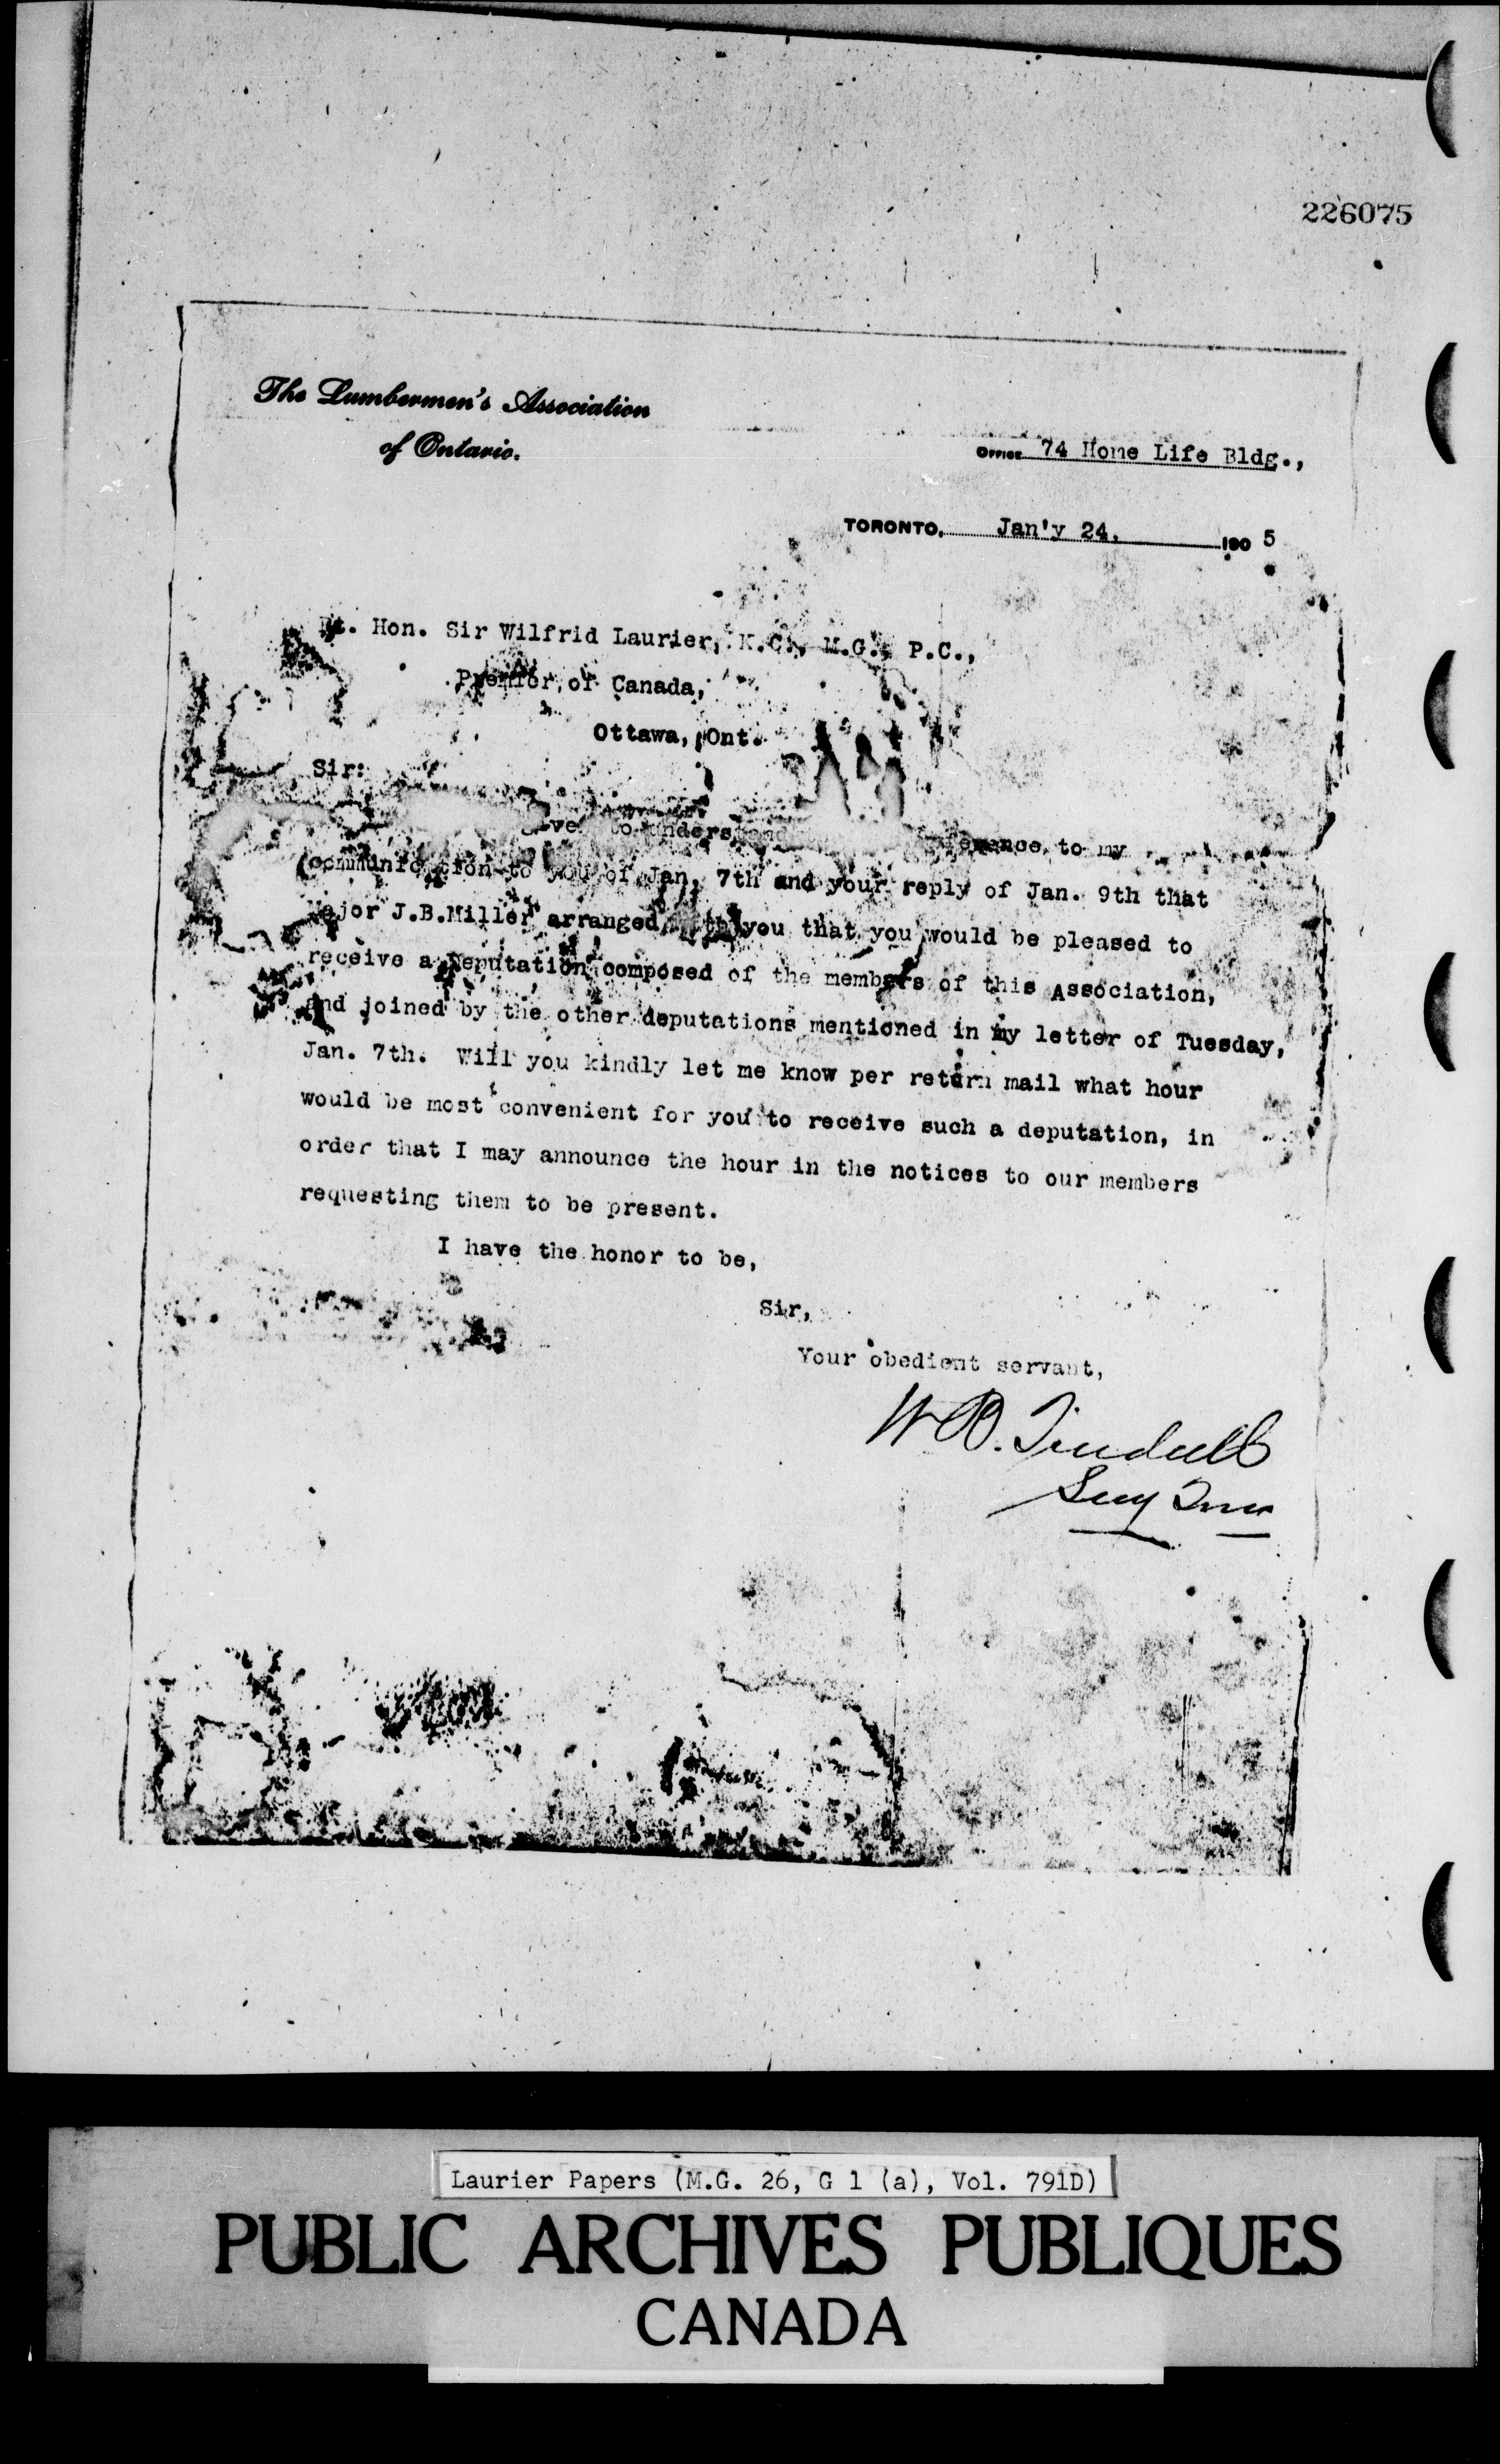 226075
The Lumbermen's Association
of Ontario.
OFFICE 74 Home Life Bldg.,
TORONTO, Jan'y 24, 190 5
Rt. Hon. Sir Wilfrid Laurier, K.C., M.G., P.C.,
Premier of Canada,
Ottawa, Ont.
Sir:
to understand to my
communication to you of Jan. 7th and your reply of Jan. 9th that
Major J.B.Miller arranged with you that you would be pleased to
receive a deputation composed of the members of this Association,
and joined by the other deputations mentioned in my letter of Tuesday,
Jan. 7th. Will you kindly let me know per return mail what hour
would be most convenient for you to receive such a deputation, in
order that I may announce the hour in the notices to our members
requesting them to be present.
I have the honor to be,
Sir,
Your obedient servant,
W.B. Tindall
Secy Treas
Laurier Papers (M.G. 26, G 1 (a), Vol. 791D)
PUBLIC ARCHIVES PUBLIQUES
CANADA